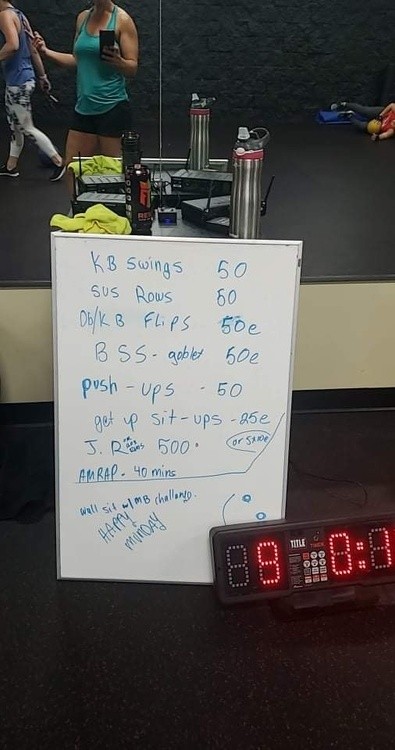 KB Swings 50
SUS Rows 50
Db/KB FLIPS 50e
BSS - goblet 50e
push - ups - 50
get up sit - ups - 25e
J. R 500.
(or 5x10e)
AMRAP - 40 mins
wall sit w/ MB challenge.
HAPPY
MUNDAY
TITLE
9 0:1